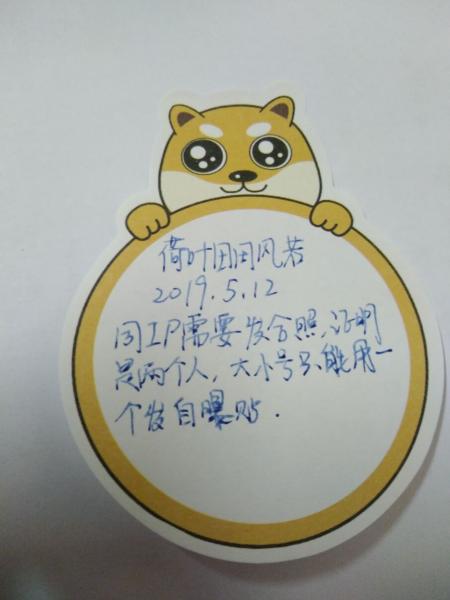 荷叶田田风若
2019.5.12
同IP需要发合照,证明
是两个人,大小号只能用一
个发自曝贴.